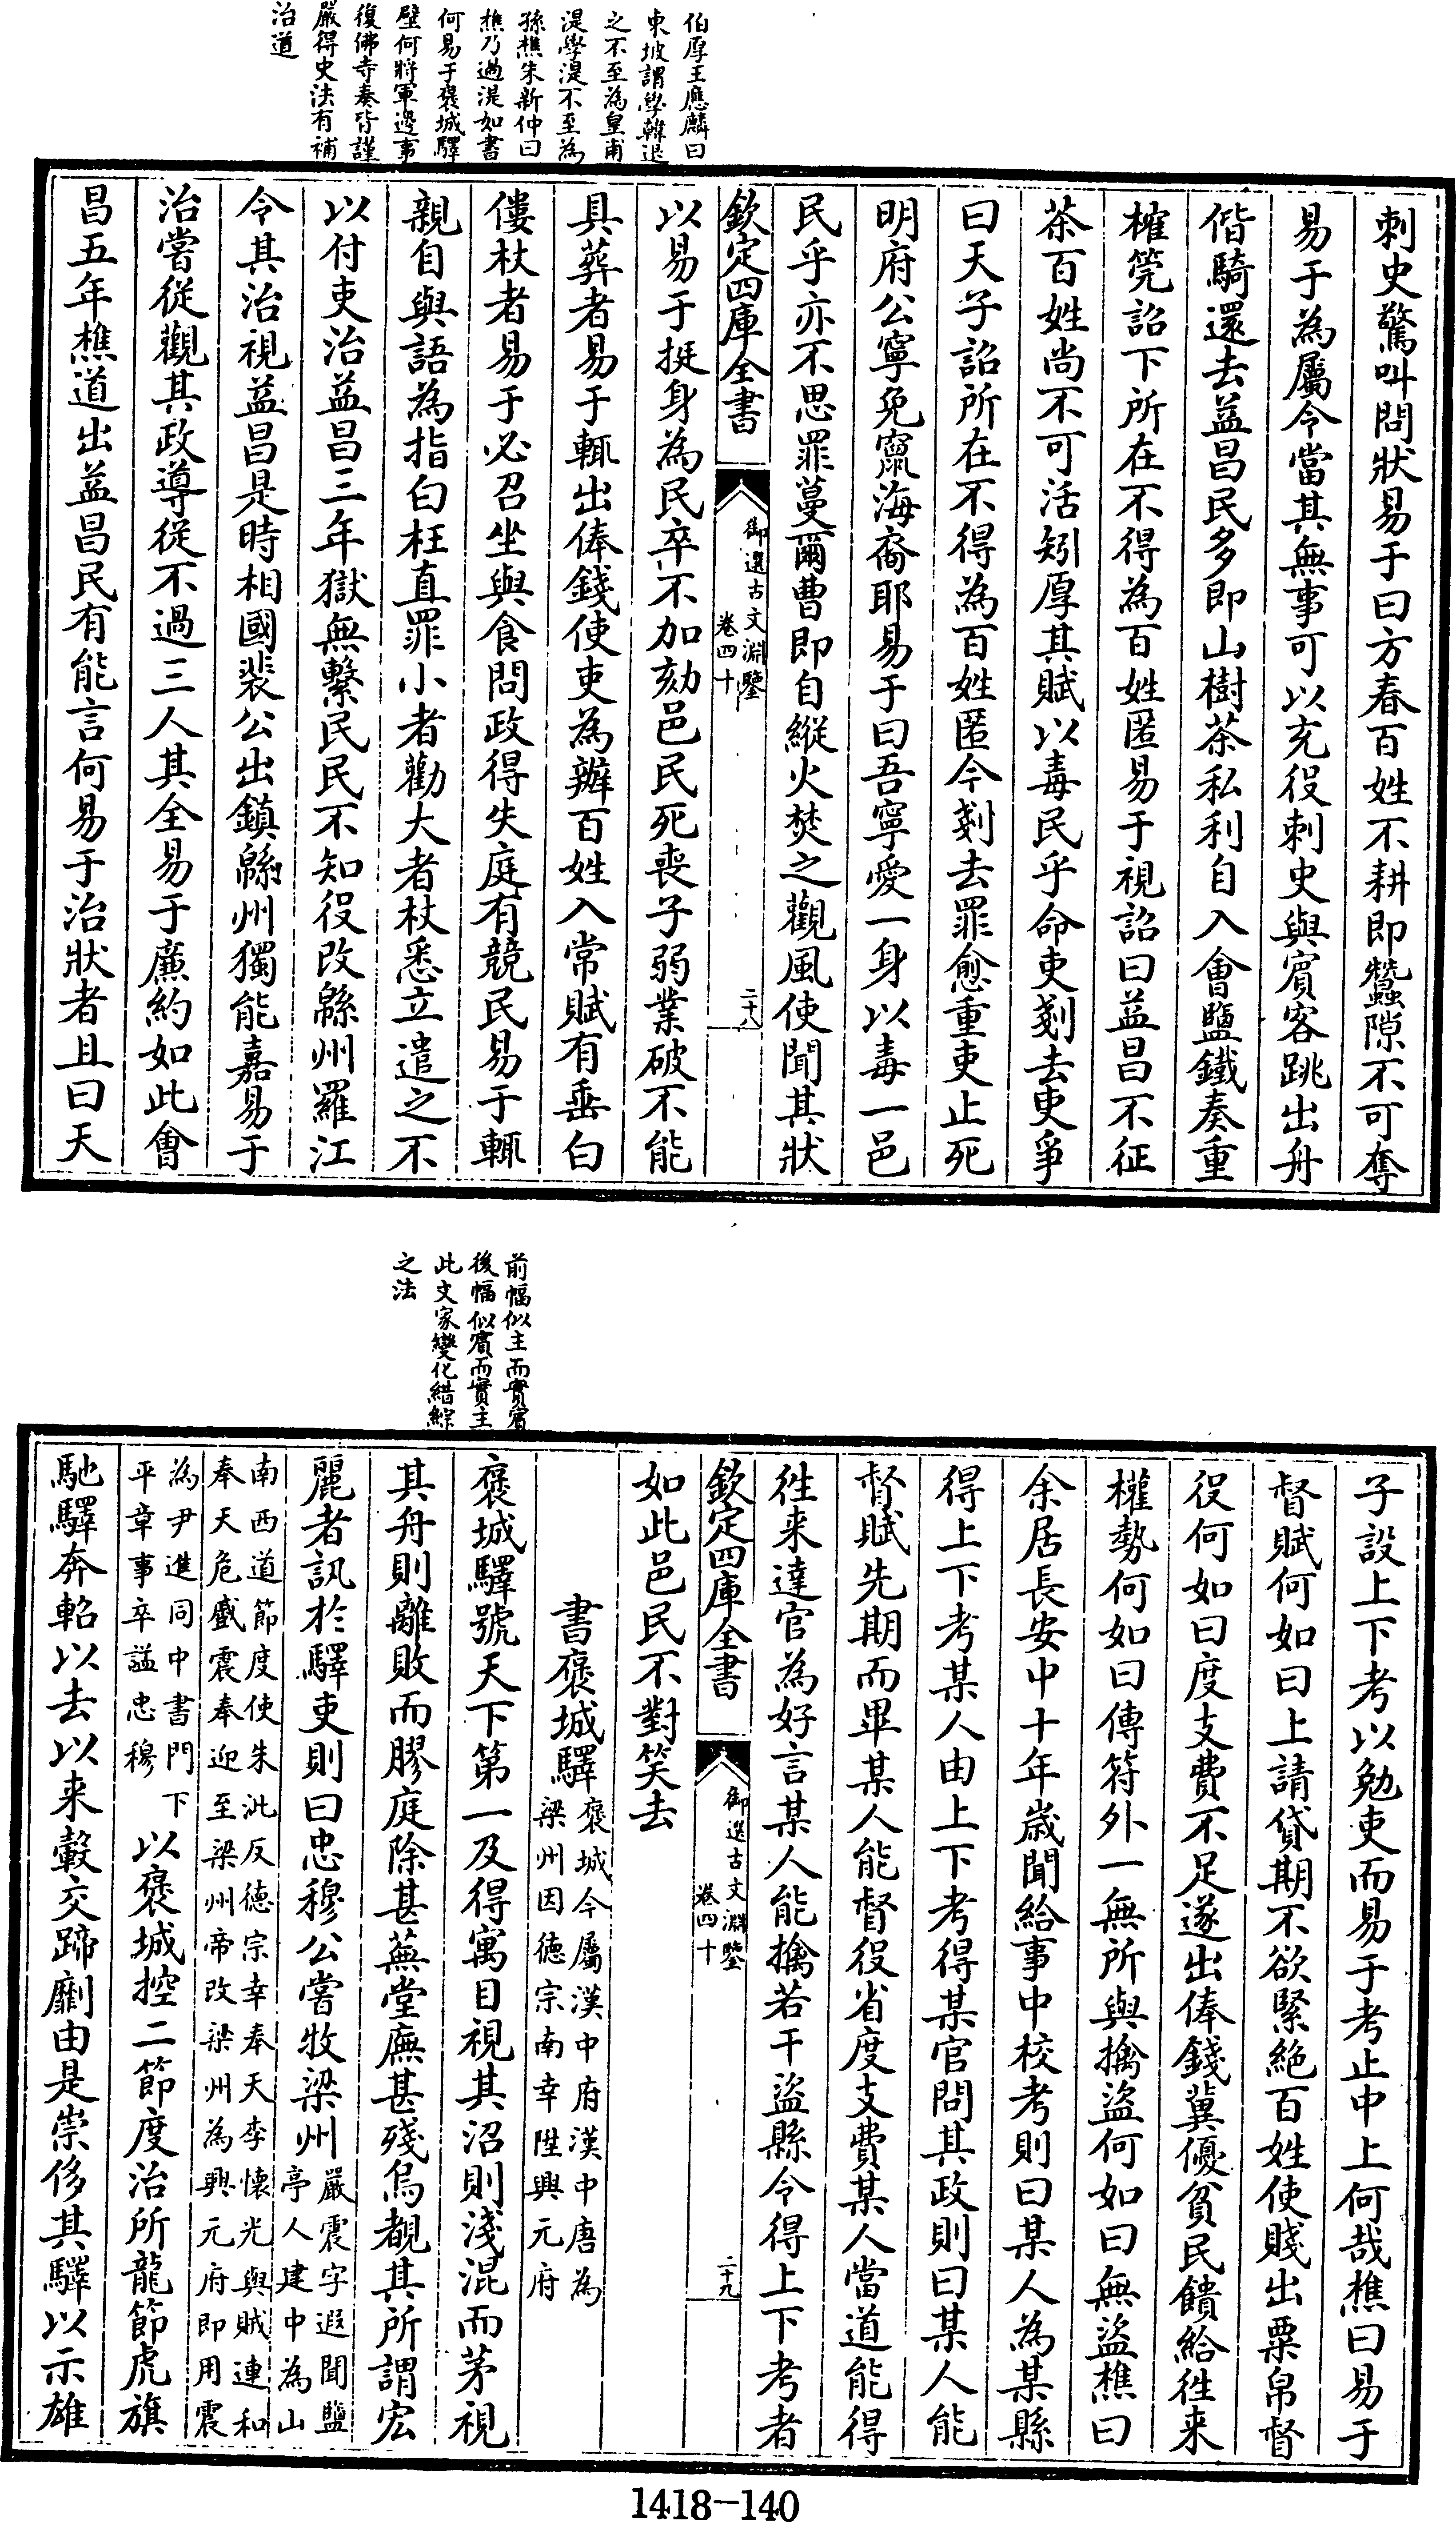 伯厚王應麟曰
東坡謂學韓退
之不至為皇甫
湜學湜不至為
孫樵朱新仲曰
樵乃過湜如書
何易于褒城驛
壁何將軍邊事
復佛寺奏皆謹
嚴得史法有補
治道
刺史驚呌問狀易于曰方春百姓不耕即蠶隙不可奪
易于為屬令當其無事可以充役刺史與賓客跳出舟
偕騎還去益昌民多即山樹茶私利自入會鹽鐵奏重
榷筦詔下所在不得為百姓匿易于視詔曰益昌不征
茶百姓尚不可活矧厚其賦以毒民乎命吏剗去吏爭
曰天子詔所在不得為百姓匿今剗去罪愈重吏止死
明府公寧免竄海裔耶易于曰吾寧愛一身以毒一邑
民乎亦不思罪蔓爾曹即自縱火焚之觀風使聞其狀
欽定四庫全書
御選古文淵鑒
卷四十
二十八
以易于挺身為民卒不加劾邑民死喪子弱業破不能
具葬者易于輒出俸錢使吏為辦百姓入常賦有垂白
僂杖者易于必召坐與食問政得失庭有競民易于輒
親自與語為指白枉直罪小者勸大者杖悉立遣之不
以付吏治益昌三年獄無繫民民不知役改緜州羅江
令其治視益昌是時相國裴公出鎮緜州獨能嘉易于
治嘗從觀其政導從不過三人其全易于廉約如此會
昌五年樵道出益昌民有能言何易于治狀者且曰天
前幅似主而實賓
後幅似賓而實主
此文家變化錯綜
之法
子設上下考以勉吏而易于考止中上何哉樵曰易于
督賦何如曰上請貸期不欲緊絕百姓使賤出粟帛督
役何如曰度支費不足遂出俸錢冀優貧民饋給往来
權勢何如曰傳符外一無所與擒盜何如曰無盜樵曰
余居長安中十年歲聞給事中校考則曰某人為某縣
得上下考某人由上下考得某官問其政則曰某人能
督賦先期而畢某人能督役省度支費某人當道能得
往来達官為好言某人能擒若干盜縣令得上下考者
欽定四庫全書
御選古文淵鑒
卷四十
二十九
如此邑民不對笑去
書褒城驛
褒城今屬漢中府漢中唐為
梁州因德宗南幸陞興元府
褒城驛號天下第一及得寓目視其沼則淺混而茅視
其舟則離敗而膠庭除甚蕪堂廡甚殘烏覩其所謂宏
麗者訊於驛吏則曰忠穆公嘗牧梁州
嚴震字遐聞鹽
亭人建中為山
南西道節度使朱泚反德宗幸奉天李懷光與賊連和
奉天危蹙震奉迎至梁州帝改梁州為興元府即用震
為尹進同中書門下
平章事卒諡忠穆
以褒城控二節度治所龍節虎旗
馳驛奔軺以去以来轂交蹄劘由是崇侈其驛以示雄
1418-140